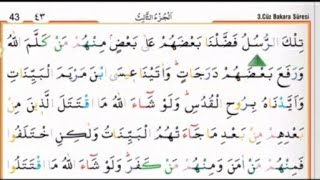 43 ٤٣ اَلْجُزْءُ الثَّالِثُ 3.Cüz Bakara Sûresi
تِلْكَ الرُّسُلُ فَضَّلْنَا بَعْضَهُمْ عَلٰى بَعْضٍ مِنْهُمْ مَنْ كَلَّمَ اللّٰهُ
وَرَفَعَ بَعْضَهُمْ دَرَجَاتٍ وَاٰتَيْنَا عِيسَى ابْنَ مَرْيَمَ الْبَيِّنَاتِ
وَاَيَّدْنَاهُ بِرُوحِ الْقُدُسِ وَلَوْ شَاءَ اللّٰهُ مَا اقْتَتَلَ الَّذِينَ مِنْ
بَعْدِهِمْ مِنْ بَعْدِ مَا جَاءَتْهُمُ الْبَيِّنَاتُ وَلٰكِنِ اخْتَلَفُوا
فَمِنْهُمْ مَنْ اٰمَنَ وَمِنْهُمْ مَنْ كَفَرَ وَلَوْ شَاءَ اللّٰهُ مَا اقْتَتَلُوا